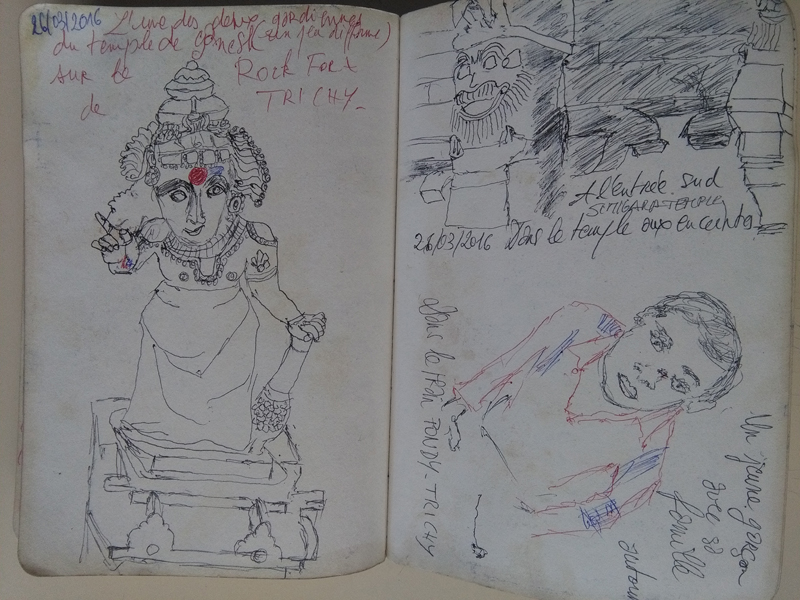 26/03/2016 L'une des deux gardiennes
du temple de Ganesh (un peu difforme)
sur le Rock Fort
de TRICHY_
A l'entrée Sud
TEMPLE
26/03/2016 Dans le temple aux enceintes
Dans le train PONDY-TRICHY
Un jeune garçon
avec sa
famille
autour